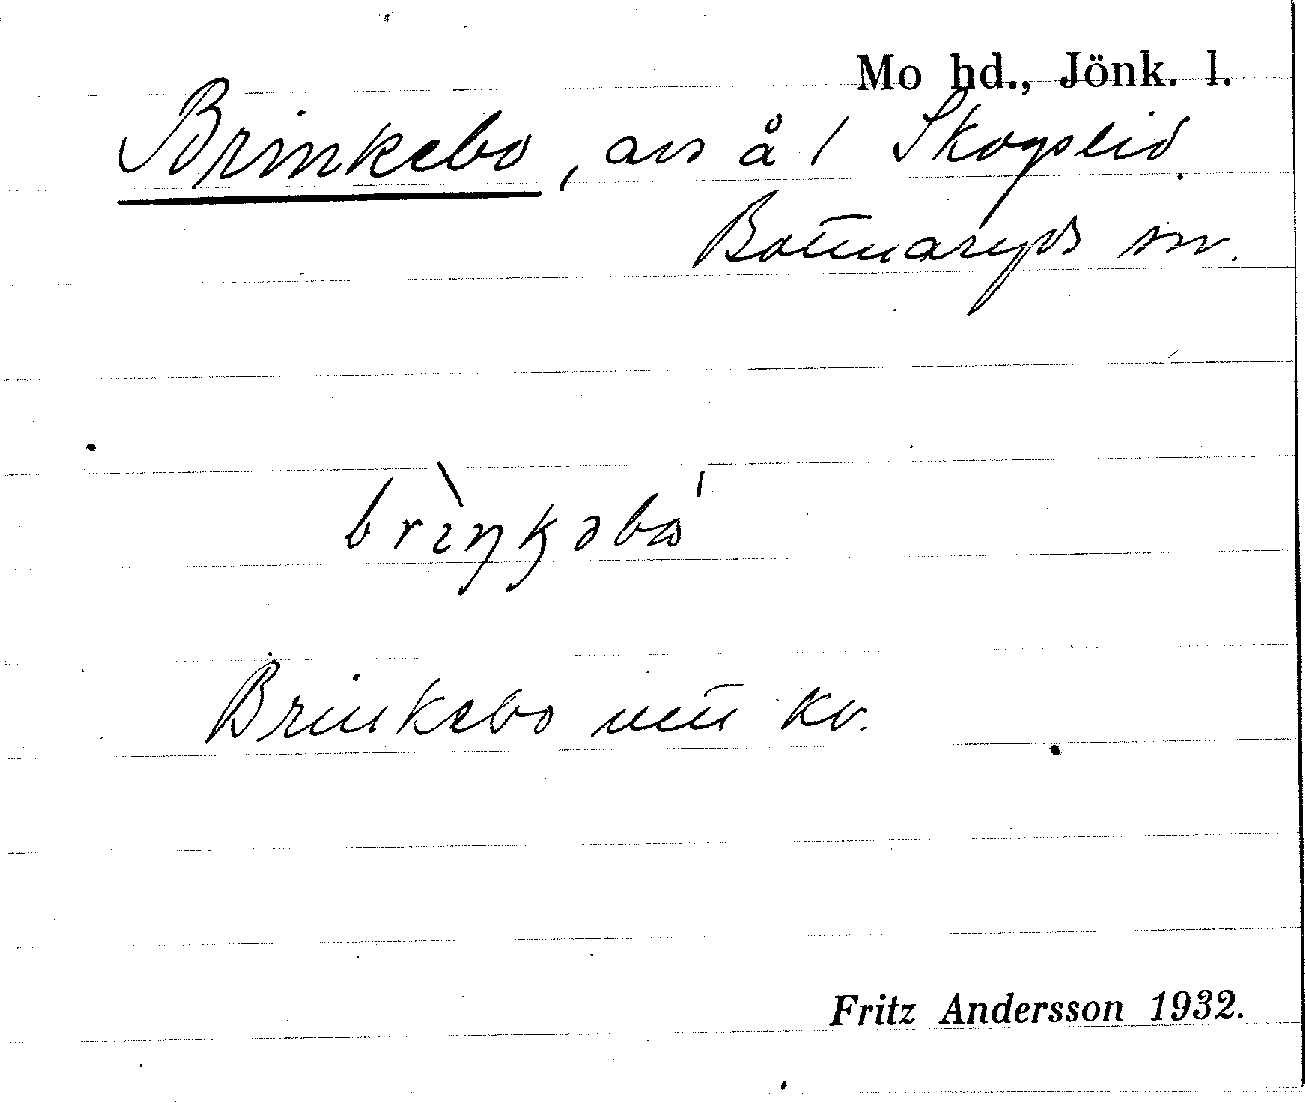 Mo hd., Jönk. l.
Brinkebo, avs å 1 Skogslid
Bottnaryds sn.
brìŋkəbω'
Brinkebo utt kv.
Fritz Andersson 1932.